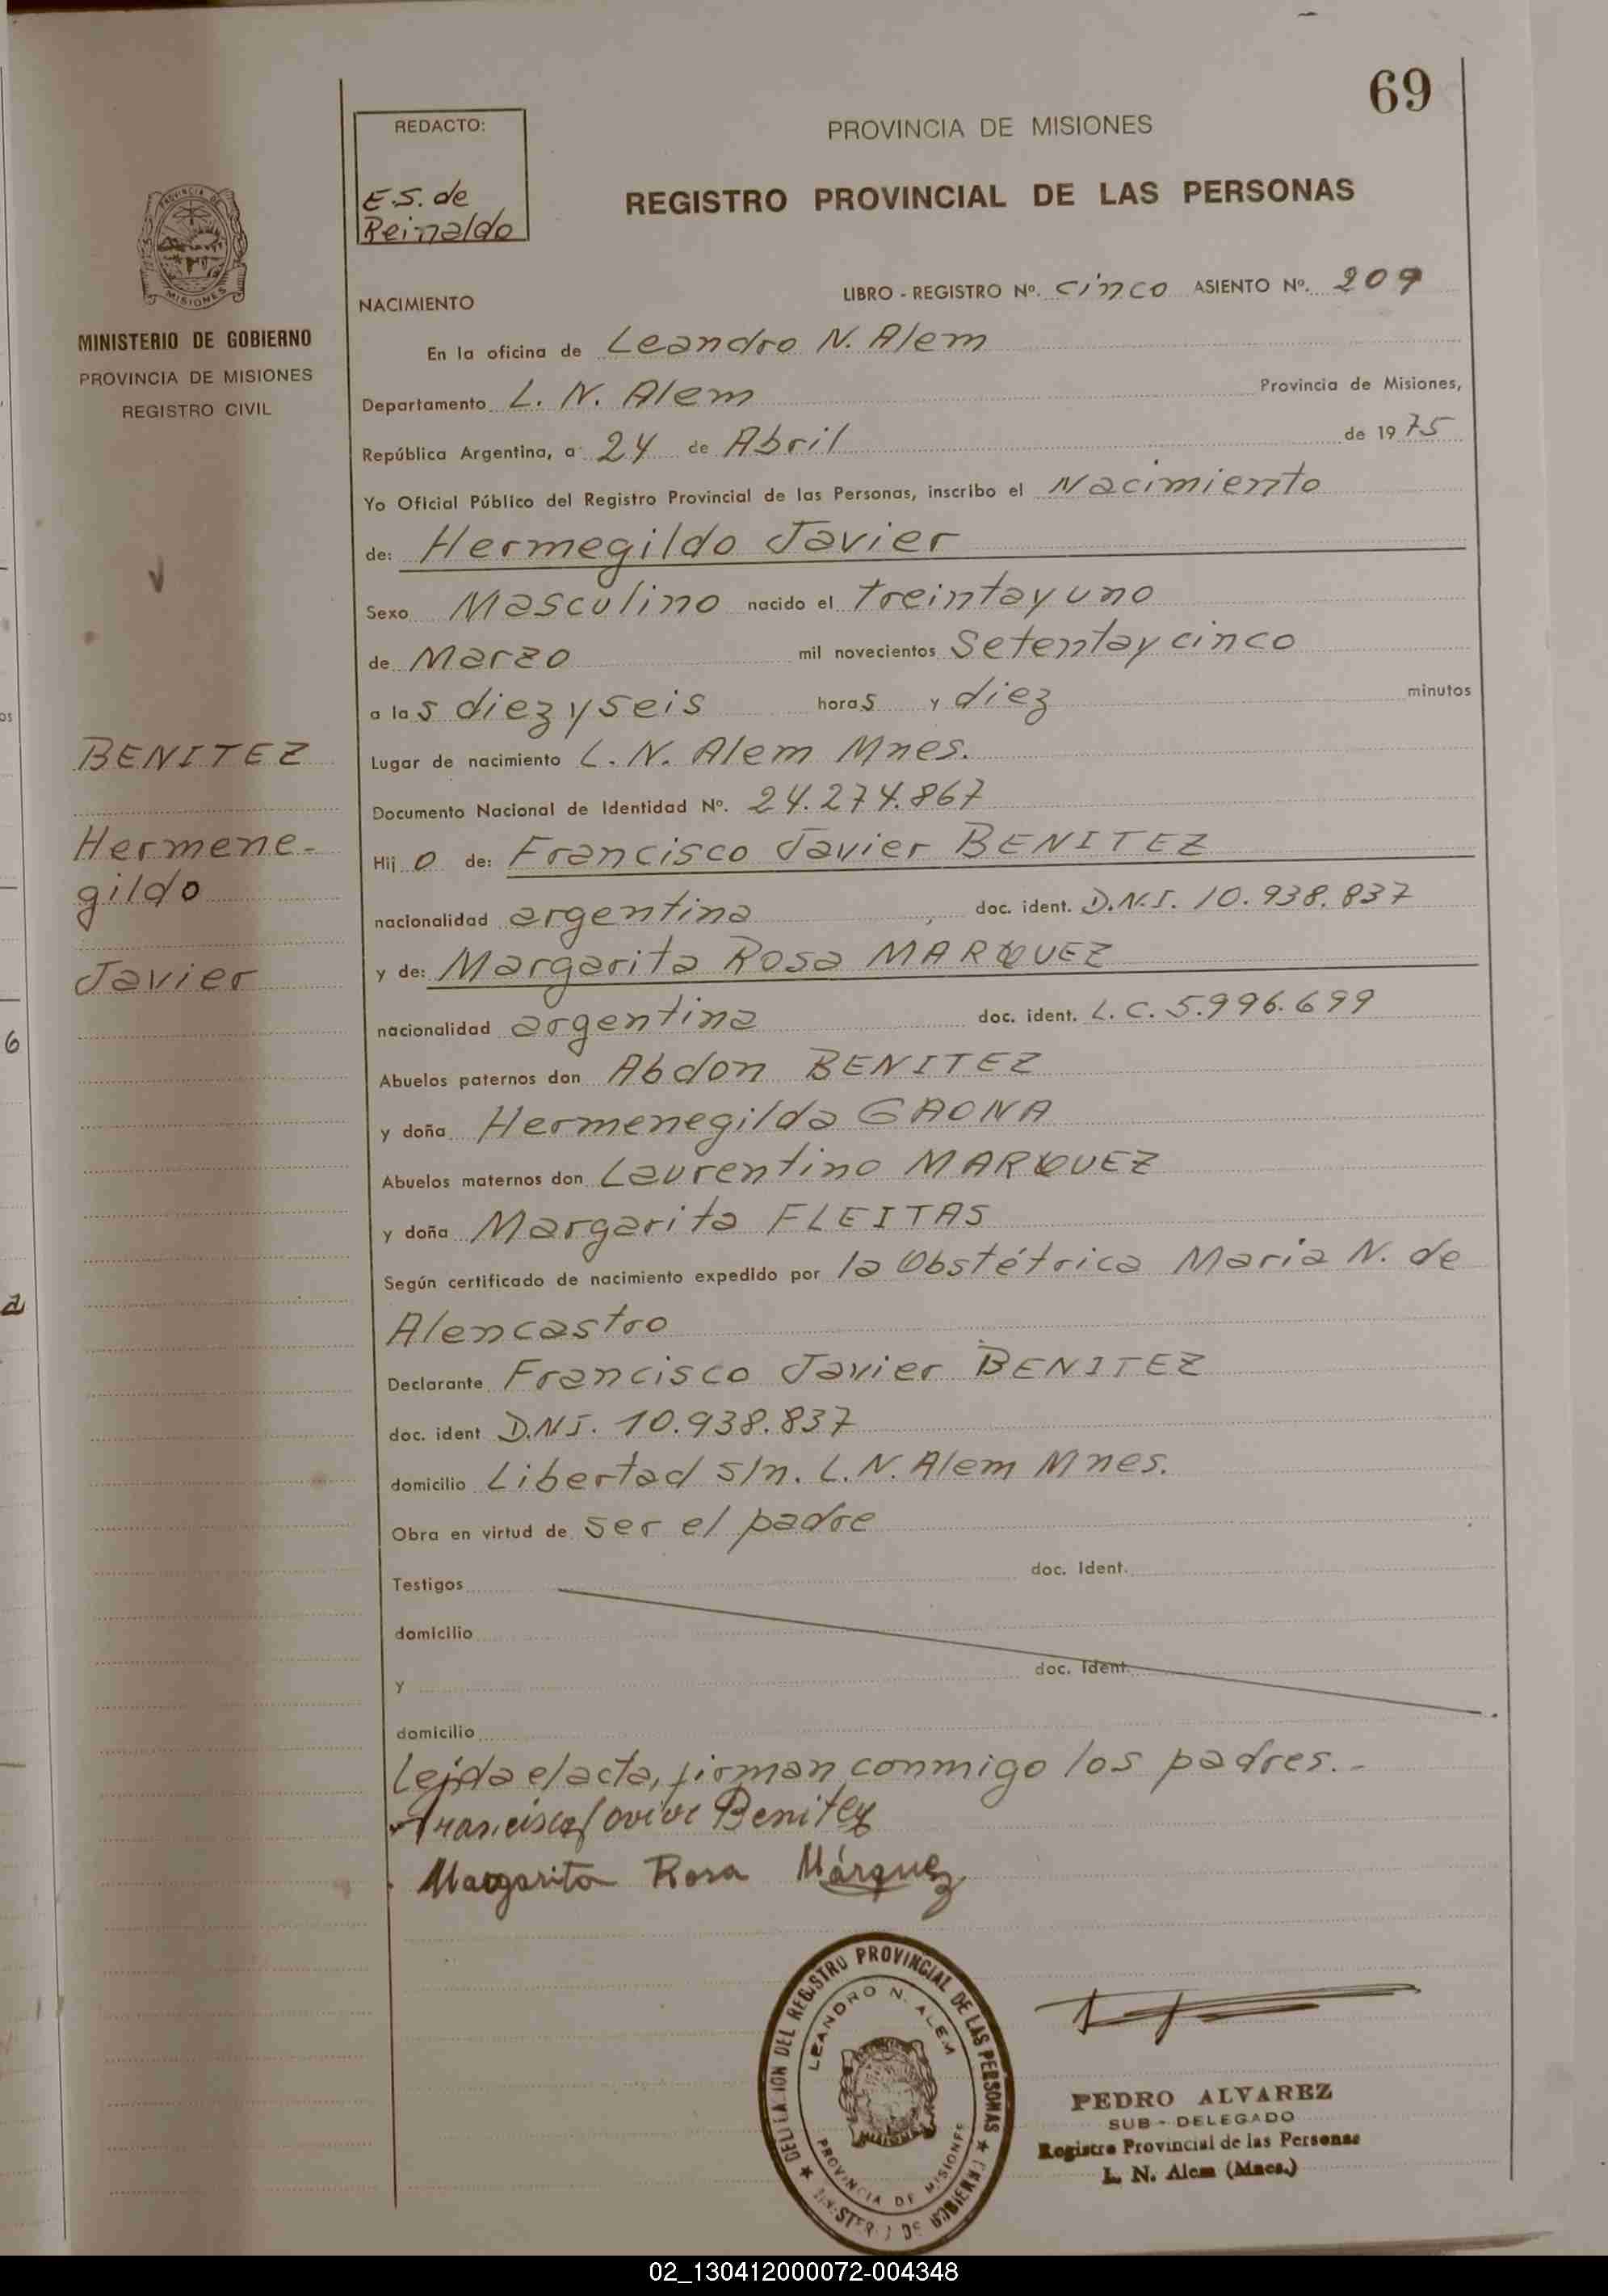 69
REDACTO:
E.S. de
Reinaldo
PROVINCIA DE MISIONES
REGISTRO PROVINCIAL DE LAS PERSONAS
MISIONES
MINISTERIO DE GOBIERNO
PROVINCIA DE MISIONES
REGISTRO CIVIL
BENITEZ
Hermene-
gildo
Javier
NACIMIENTO
LIBRO - REGISTRO Nº. cinco ASIENTO Nº. 209
En la oficina de Leandro N. Alem
Departamento L. N. Alem Provincia de Misiones,
República Argentina, a 24 de Abril de 1975
Yo Oficial Público del Registro Provincial de las Personas, inscribo el Nacimiento
de: Hermegildo Javier
Sexo Masculino nacido el treintayuno
de Marzo mil novecientos Setentaycinco
a las diezyseis horas y diez minutos
Lugar de nacimiento L. N. Alem Mnes.
Documento Nacional de Identidad Nº. 24.274.867
Hijo de: Francisco Javier BENITEZ
nacionalidad argentina doc. ident. D.N.I. 10.938.837
y de: Margarita Rosa MARQUEZ
nacionalidad argentina doc. ident. L.C. 5.996.699
Abuelos paternos don Abdon BENITEZ
y doña Hermenegilda GAONA
Abuelos maternos don Laurentino MARQUEZ
y doña Margarita FLEITAS
Según certificado de nacimiento expedido por la Obstétrica Maria N. de
Alencastro
Declarante Francisco Javier BENITEZ
doc. ident D.N.I. 10.938.837
domicilio Libertad s/n. L.N. Alem Mnes.
Obra en virtud de ser el padre
Testigos doc. Ident.
domicilio
y doc. Ident.
domicilio
Leida el acta, firman conmigo los padres.-
Francisco Javier Benitez
Margarita Rosa Márquez
DELEGACION DEL REGISTRO PROVINCIAL DE LAS PERSONAS
LEANDRO N. ALEM
PROVINCIA DE MISIONES
MINISTERIO DE GOBIERNO
PEDRO ALVAREZ
SUB - DELEGADO
Registro Provincial de las Personas
L. N. Alem (Mnes.)
6
a
02_130412000072-004348